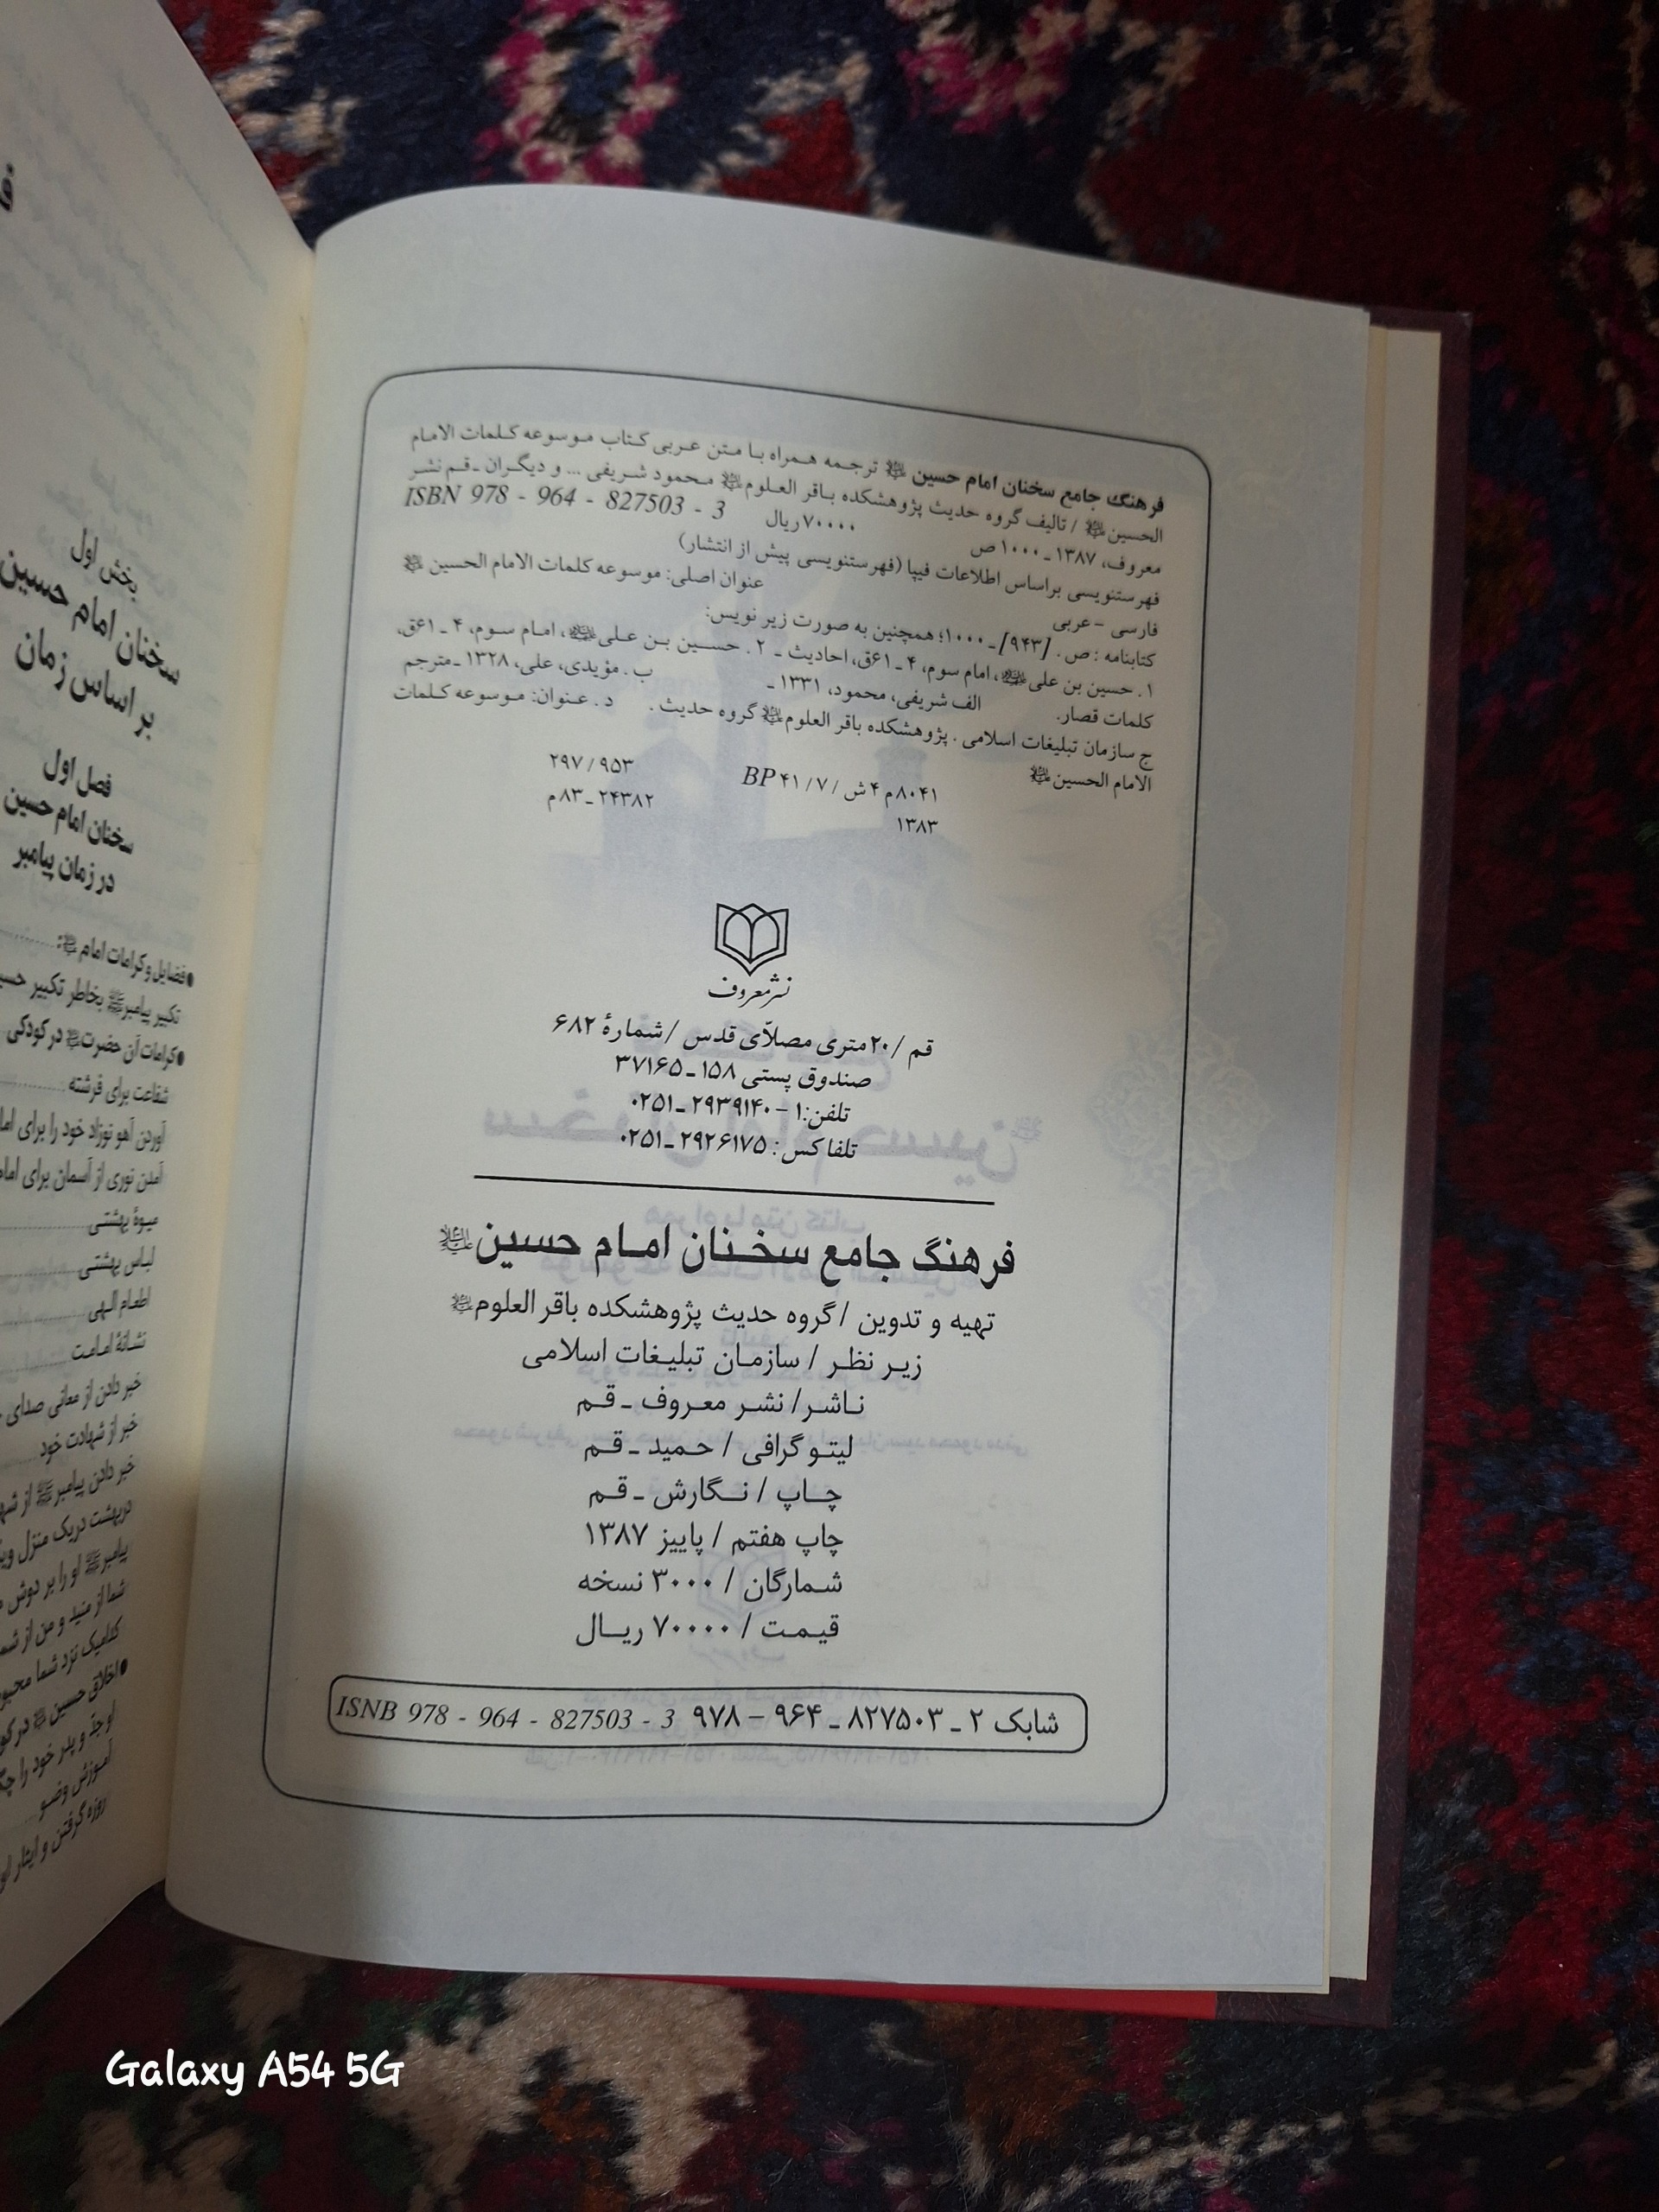 فرهنگ جامع سخنان امام حسین ﷷ ترجمه همراه با متن عربی کتاب موسوعه کلمات الامام
الحسین / تالیف گروه حدیث پژوهشکده باقر العلوم محمود شریفی ... و دیگران ـ قم نشر
معروف، ۱۳۸۷ ـ ۱۰۰۰ ص ۷۰۰۰۰ ریال ISBN 978 - 964 - 827503 - 3
فهرستنویسی براساس اطلاعات فیپا (فهرستنویسی پیش از انتشار)
فارسی – عربی عنوان اصلی: موسوعه کلمات الامام الحسین
کتابنامه : ص . [۹۴۳] ـ ۱۰۰۰؛ همچنین به صورت زیر نویس:
۱ . حسین بن علی، امام سوم، ۴ ـ ۶۱ق، احادیث ـ ۲ . حسین بن علی، امام سوم، ۴ ـ ۶۱ق.
کلمات قصار. الف شریفی، محمود، ۱۳۳۱ ـ ب . مؤیدی، علی، ۱۳۲۸ ـ مترجم
ج سازمان تبلیغات اسلامی . پژوهشکده باقر العلوم گروه حدیث . د . عنوان: موسوعه کلمات
الامام الحسین
۸۰۴۱م ۴ ش / ۷ / ۴۱ BP ۲۹۷ / ۹۵۳
۱۳۸۳ ۲۴۳۸۲ ـ ۸۳م
نشر معروف
قم / ۲۰ متری مصلّای قدس / شمارهٔ ۶۸۲
صندوق پستی ۱۵۸ ـ ۳۷۱۶۵
تلفن: ۱ – ۲۹۳۹۱۴۰ ـ ۰۲۵۱
تلفاکس : ۲۹۲۶۱۷۵ ـ ۰۲۵۱
فرهنگ جامع سخنان امام حسین
تهیه و تدوین / گروه حدیث پژوهشکده باقر العلوم
زیر نظر / سازمان تبلیغات اسلامی
ناشر / نشر معروف ـ قم
لیتوگرافی / حمید ـ قم
چاپ / نگارش ـ قم
چاپ هفتم / پاییز ۱۳۸۷
شمارگان / ۳۰۰۰ نسخه
قیمت / ۷۰۰۰۰ ریال
شابک ۲ ـ ۸۲۷۵۰۳ ـ ۹۶۴ – ۹۷۸ ISNB 978 - 964 - 827503 - 3
بخش اول
سخنان امام حسین
بر اساس زمان
فصل اول
سخنان امام حسین
در زمان پیامبر
● فضایل و کرامات امام :
تکبیر پیامبر بخاطر تکبیر
● کرامات آن حضرت در کودکی
شفاعت برای فرشته
آوردن آهو نوزاد خود را برای
آمدن نوری از آسمان برای
میوهٔ بهشتی
لباس بهشتی
اطعام الهی
نشانهٔ امامت
خبر دادن از معانی صدای
خبر از شهادت خود
خبر دادن پیامبر از
در بهشت در یک منزل
پیامبر او را بر دوش
شما از منید و من از
کدامیک نزد شما
● اخلاق حسین در
او جدّ و پدر خود را
آموزش وضو
روزه گرفتن و ایثار
Galaxy A54 5G